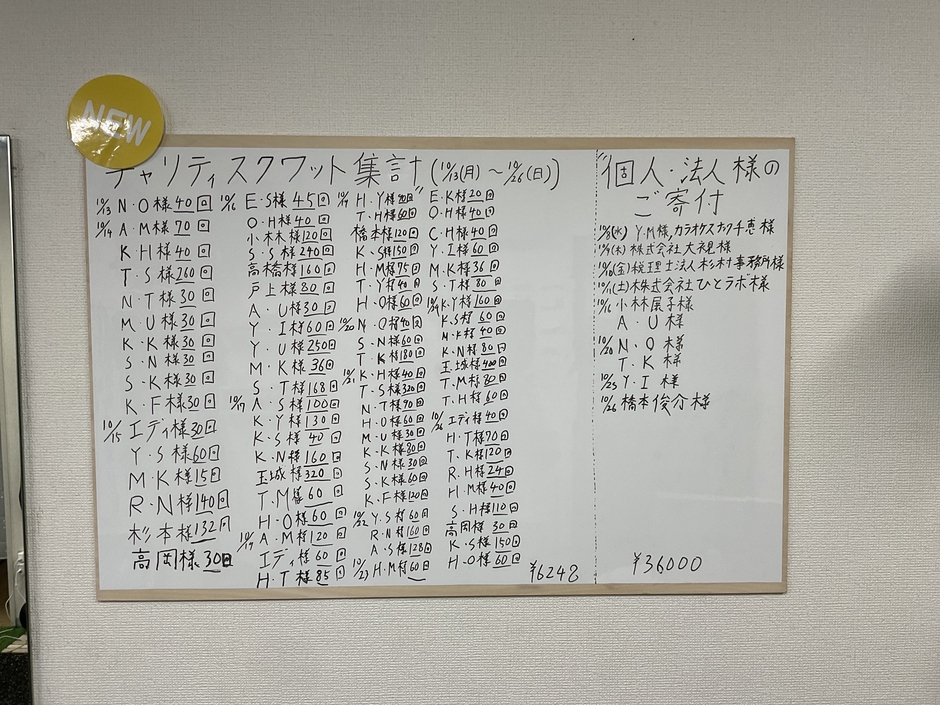 NEW
チャリティスクワット集計 (10/13(月)〜10/26(日))
10/13 N・O様40回
10/14 A・M様70回
K・H様40回
T・S様260回
N・T様30回
M・U様30回
K・K様30回
S・N様30回
S・K様30回
K・F様30回
10/15 エディ様30回
Y・S様60回
M・K様15回
R・N様140回
杉本様132回
高岡様30回
10/16 E・S様45回
O・H様40回
小林様120回
S・S様240回
高橋様160回
戸上様80回
A・U様30回
Y・I様60回
Y・U様250回
M・K様36回
S・T様168回
10/17 A・S様100回
K・Y様130回
K・S様40回
K・N様160回
玉城様320回
T・M様60回
H・O様60回
10/19 A・M様120回
エディ様60回
H・T様85回
10/19 H・Y様20回
T・H様60回
橋本様120回
K・S様150回
H・M様75回
T・Y様40回
H・O様60回
10/20 N・O様40回
S・N様60回
T・K様180回
10/21 K・H様40回
T・S様320回
N・T様70回
H・O様60回
M・U様30回
K・K様80回
S・N様30回
S・K様60回
K・F様120回
10/22 Y・S様60回
R・N様160回
A・S様128回
10/23 H・M様60回
E・K様20回
O・H様40回
C・H様40回
Y・I様60回
M・K様36回
S・T様80回
10/24 K・Y様160回
K・S様60回
M・K様40回
K・N様80回
玉城様400回
T・M様80回
T・H様60回
10/26 エディ様40回
H・T様70回
T・K様120回
R・H様24回
H・M様40回
S・H様110回
高岡様30回
K・S様150回
H・O様60回
¥6248
個人・法人様の
ご寄付
10/8(水) Y.M様,カラオケスナック千恵様
10/9(木)株式会社大視様
10/10(金)税理士法人杉村事務所様
10/11(土)株式会社ひとラボ様
10/16 小林展子様
A・U様
10/20 N・O様
T・K様
10/25 Y・I様
10/26 橋本俊介様
¥36000